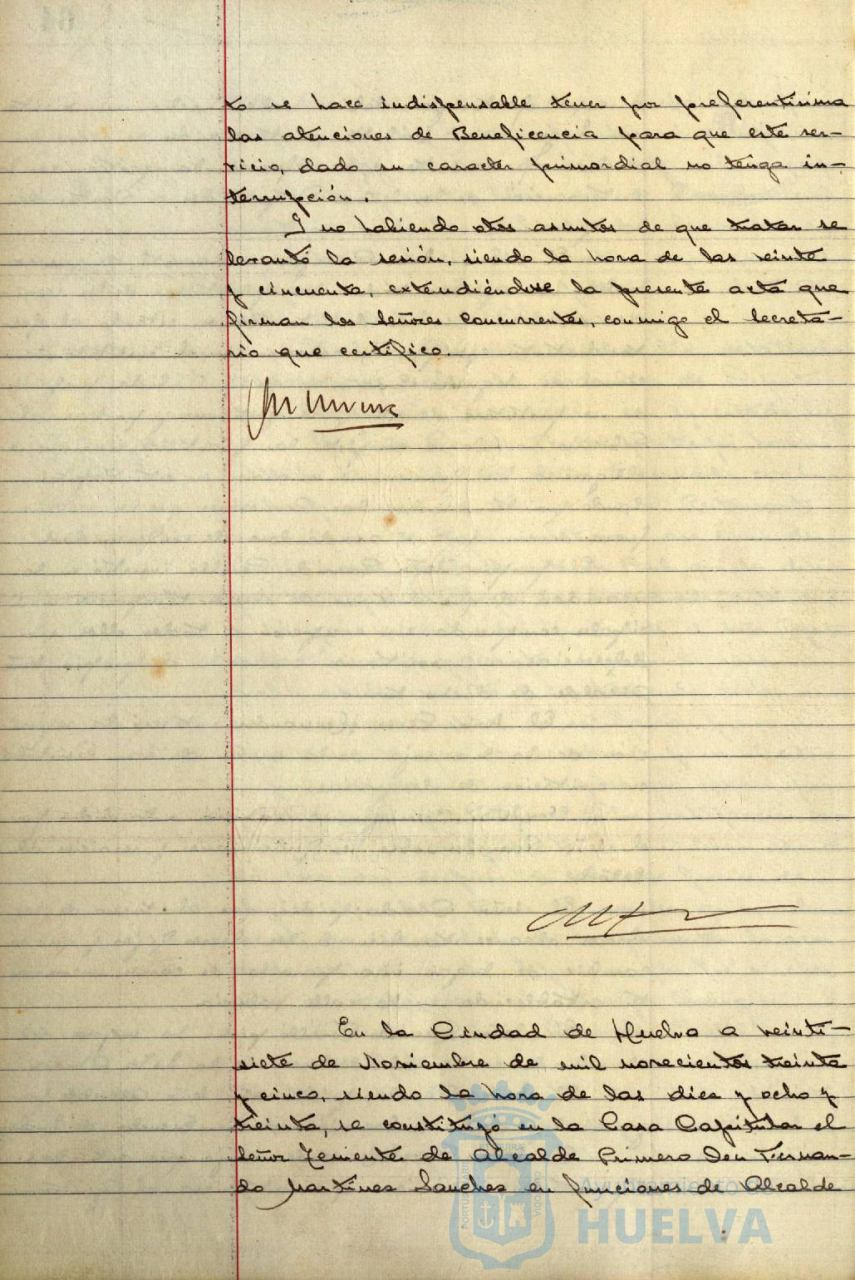 to se hace indispensable tener por preferentísima
las atenciones de Beneficencia para que este ser-
vicio, dado su caracter primordial no tenga in-
terrupción.
Y no habiendo otros asuntos de que tratar se
levantó la sesión, siendo la hora de las veinte
y cincuenta, extendiéndose la presente acta que
firman los señores concurrentes, conmigo el secreta-
rio que certifico.
En la Ciudad de Huelva a veinti-
siete de Noviembre de mil novecientos treinta
y cinco, siendo la hora de las diez y ocho y
treinta, se constituyó en la Casa Capitular el
señor Teniente de Alcalde Primero Don Fernan-
do Martínez Sanchez en funciones de Alcalde
HUELVA